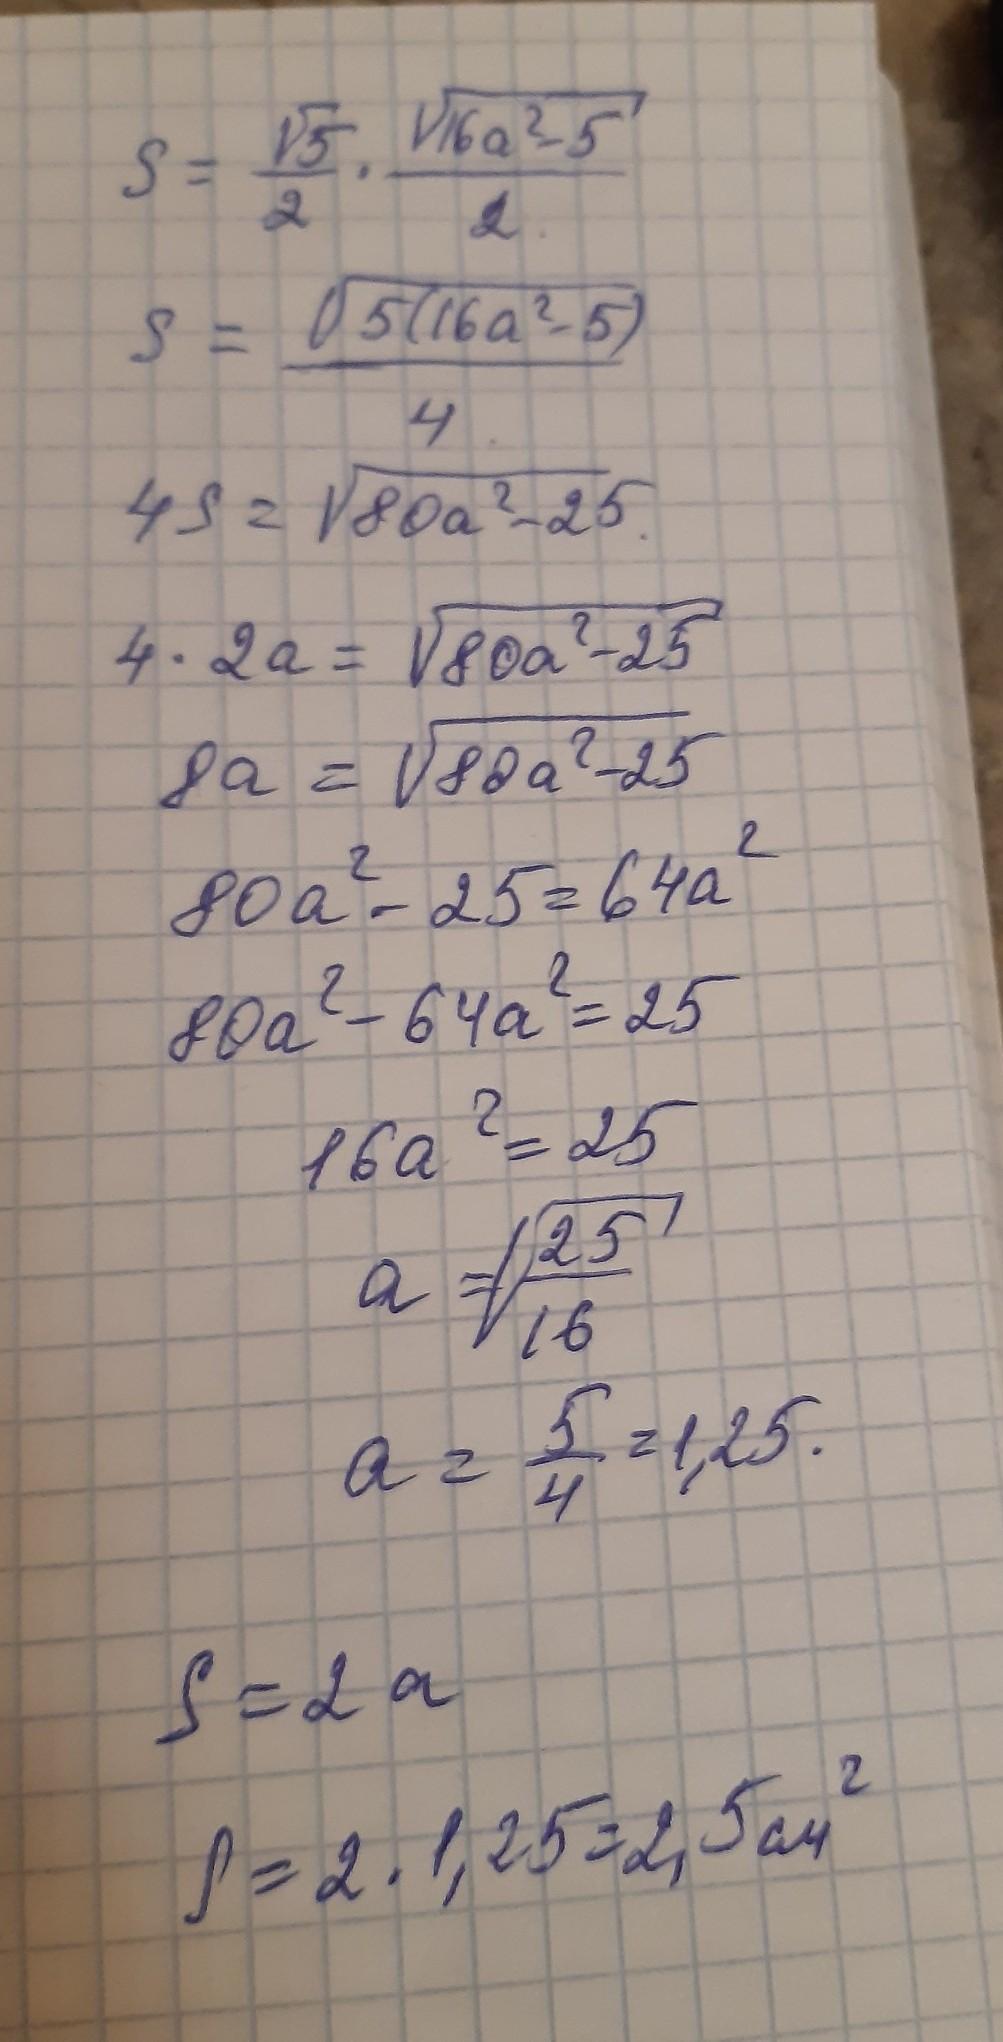 S = √5/2 · √(16a²-5)/2
S = √(5(16a²-5))/4
4S = √(80a²-25).
4 · 2a = √(80a²-25)
8a = √(80a²-25)
80a² - 25 = 64a²
80a² - 64a² = 25
16a² = 25
a = √(25/16)
a = 5/4 = 1,25.
S = 2a
S = 2 · 1,25 = 2,5 см²